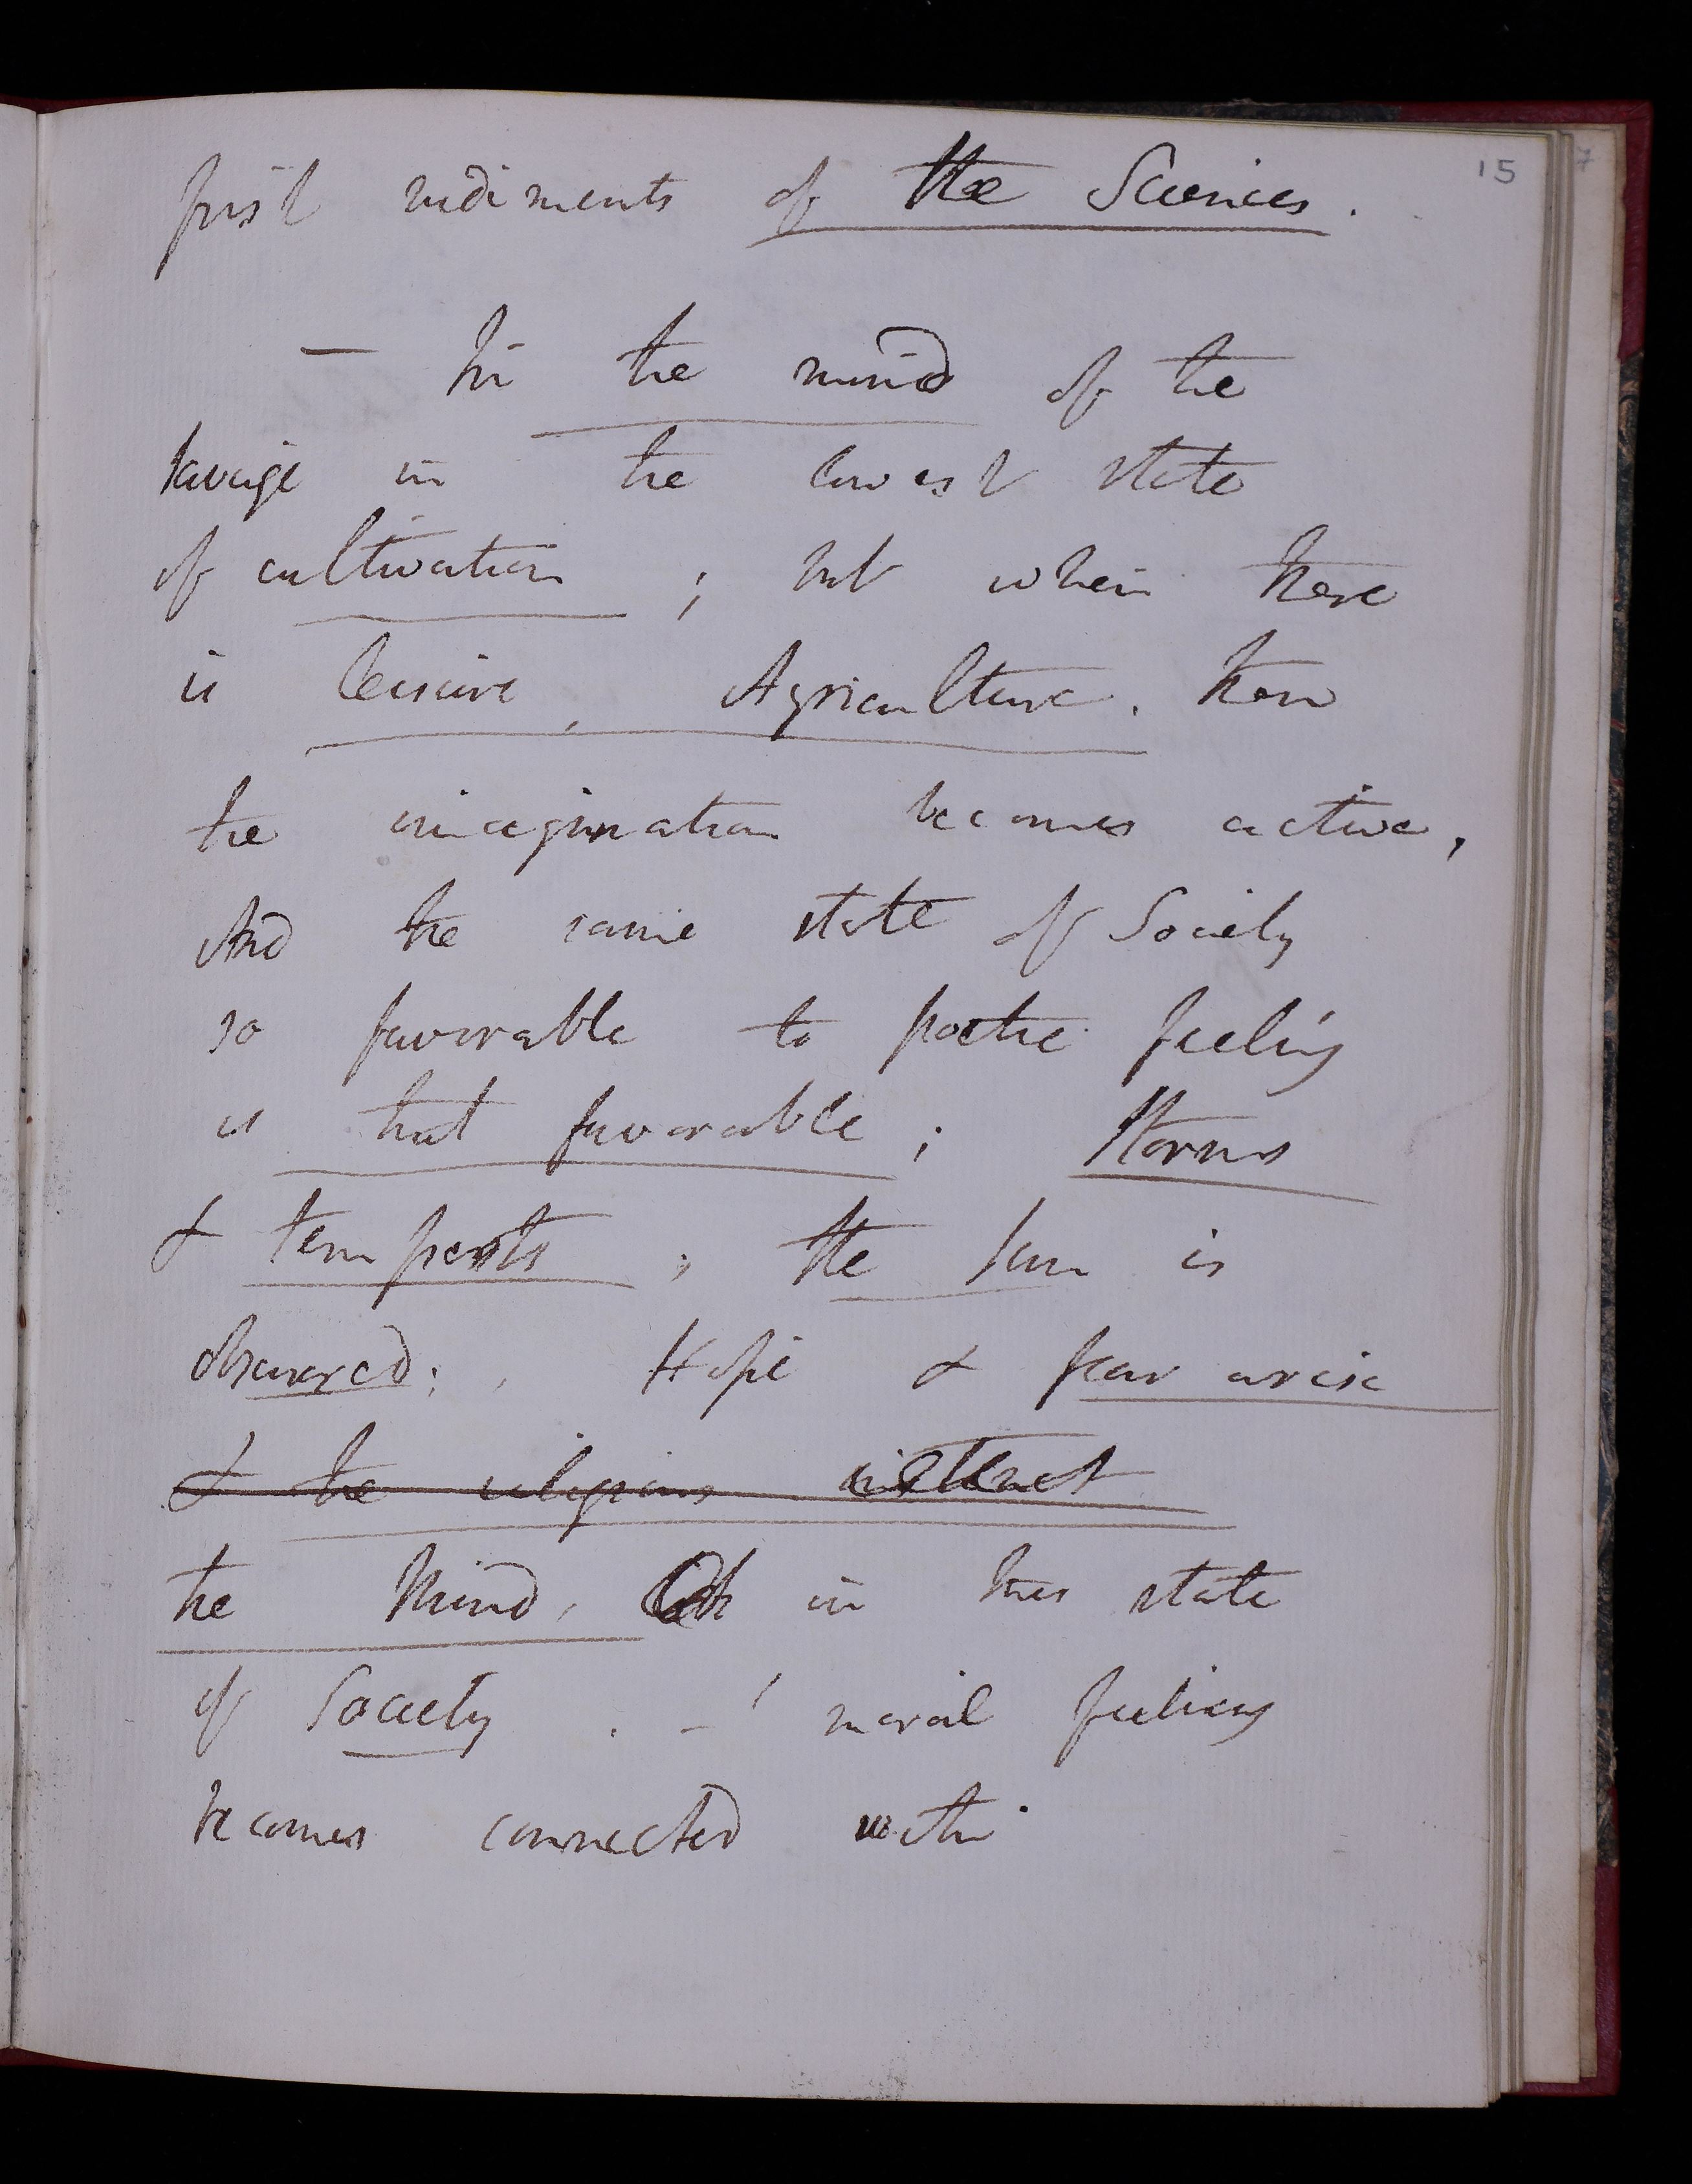 15
7
first rudiments of the Sciences.
— In the mind of the
savage in the lowest state
of cultivation; but when there
is leisure, Agriculture. then
the imagination becomes active,
And the same state of Society
so favorable to poetic feeling
is that favorable; Storms
& tempests; the sun is
obscured; Hope & fear arise
& the religious instinct
the Mind, in this state
of Society. - moral feeling
becomes connected with